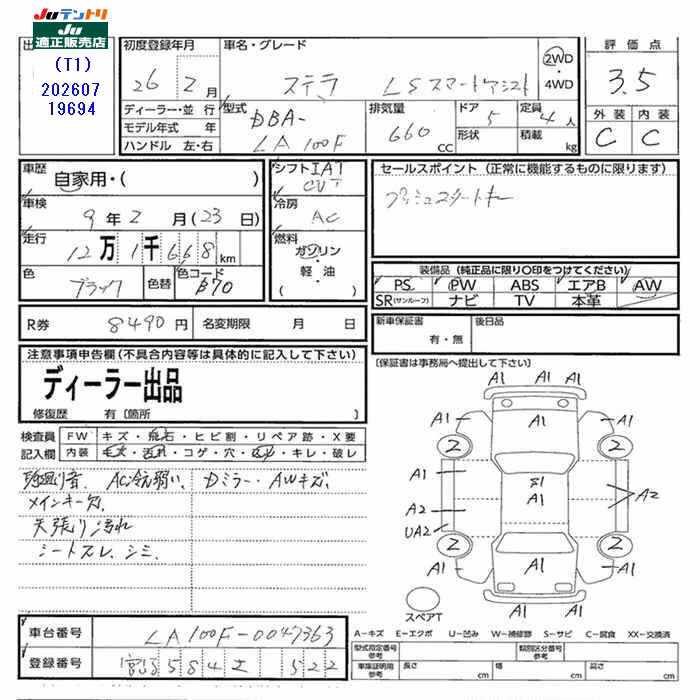 JUテントリ
JU
適正販売店
(T1)
202607
19694
初度登録年月
26 年 2 月
車名・グレード
ステラ LSスマートアシスト
2WD
・4WD
評価点
3.5
外装 内装
C C
ディーラー・並行
モデル年式 年
ハンドル 左・右
型式
DBA-
LA100F
排気量
660
CC
ドア
5
形状
定員
4人
積載
kg
車歴
自家用・( )
車検
9年2月(23日)
走行
12万1千668km
色
ブラック
色替
色コード
B70
シフト IAT
CVT
冷房
AC
燃料
ガソリン
・軽・油
( )
セールスポイント (正常に機能するものに限ります)
プッシュスタートキー
装備品 (純正品に限り○印をつけてください)
PS PW ABS エアB AW
SR(サンルーフ) ナビ TV 本革
R券 8490円
名変期限 月 日
新車保証書
有・無
後日品
〔保証書は事務局へ提出して下さい〕
注意事項申告欄(不具合内容等は具体的に記入して下さい)
ディーラー出品
修復歴 有〔箇所 〕
検査員
記入欄
FW キズ・飛石・ヒビ割・リペア跡・X要
内装 毛穴・汚れ・コゲ・穴・キレ・破レ
AC冷え弱い、Dミラー・AWキズ、
メインキー欠、
天張り汚れ
シートスレ、シミ、
A1 A1 A1
A1 A1 A1
2 2
A1 A1
S1
A1
A2 A2
UA2
2 2
A1 A1 A1
A1
スペアT
車台番号 LA100F-0047363
登録番号 宮崎 584 522
A-キズ E-エクボ U-凹み W-補修跡 S-サビ C-腐食 XX-交換済
型式指定番号
参考
類別区分番号
参考
車庫証明用
参考
長さ cm 幅 cm 高さ cm